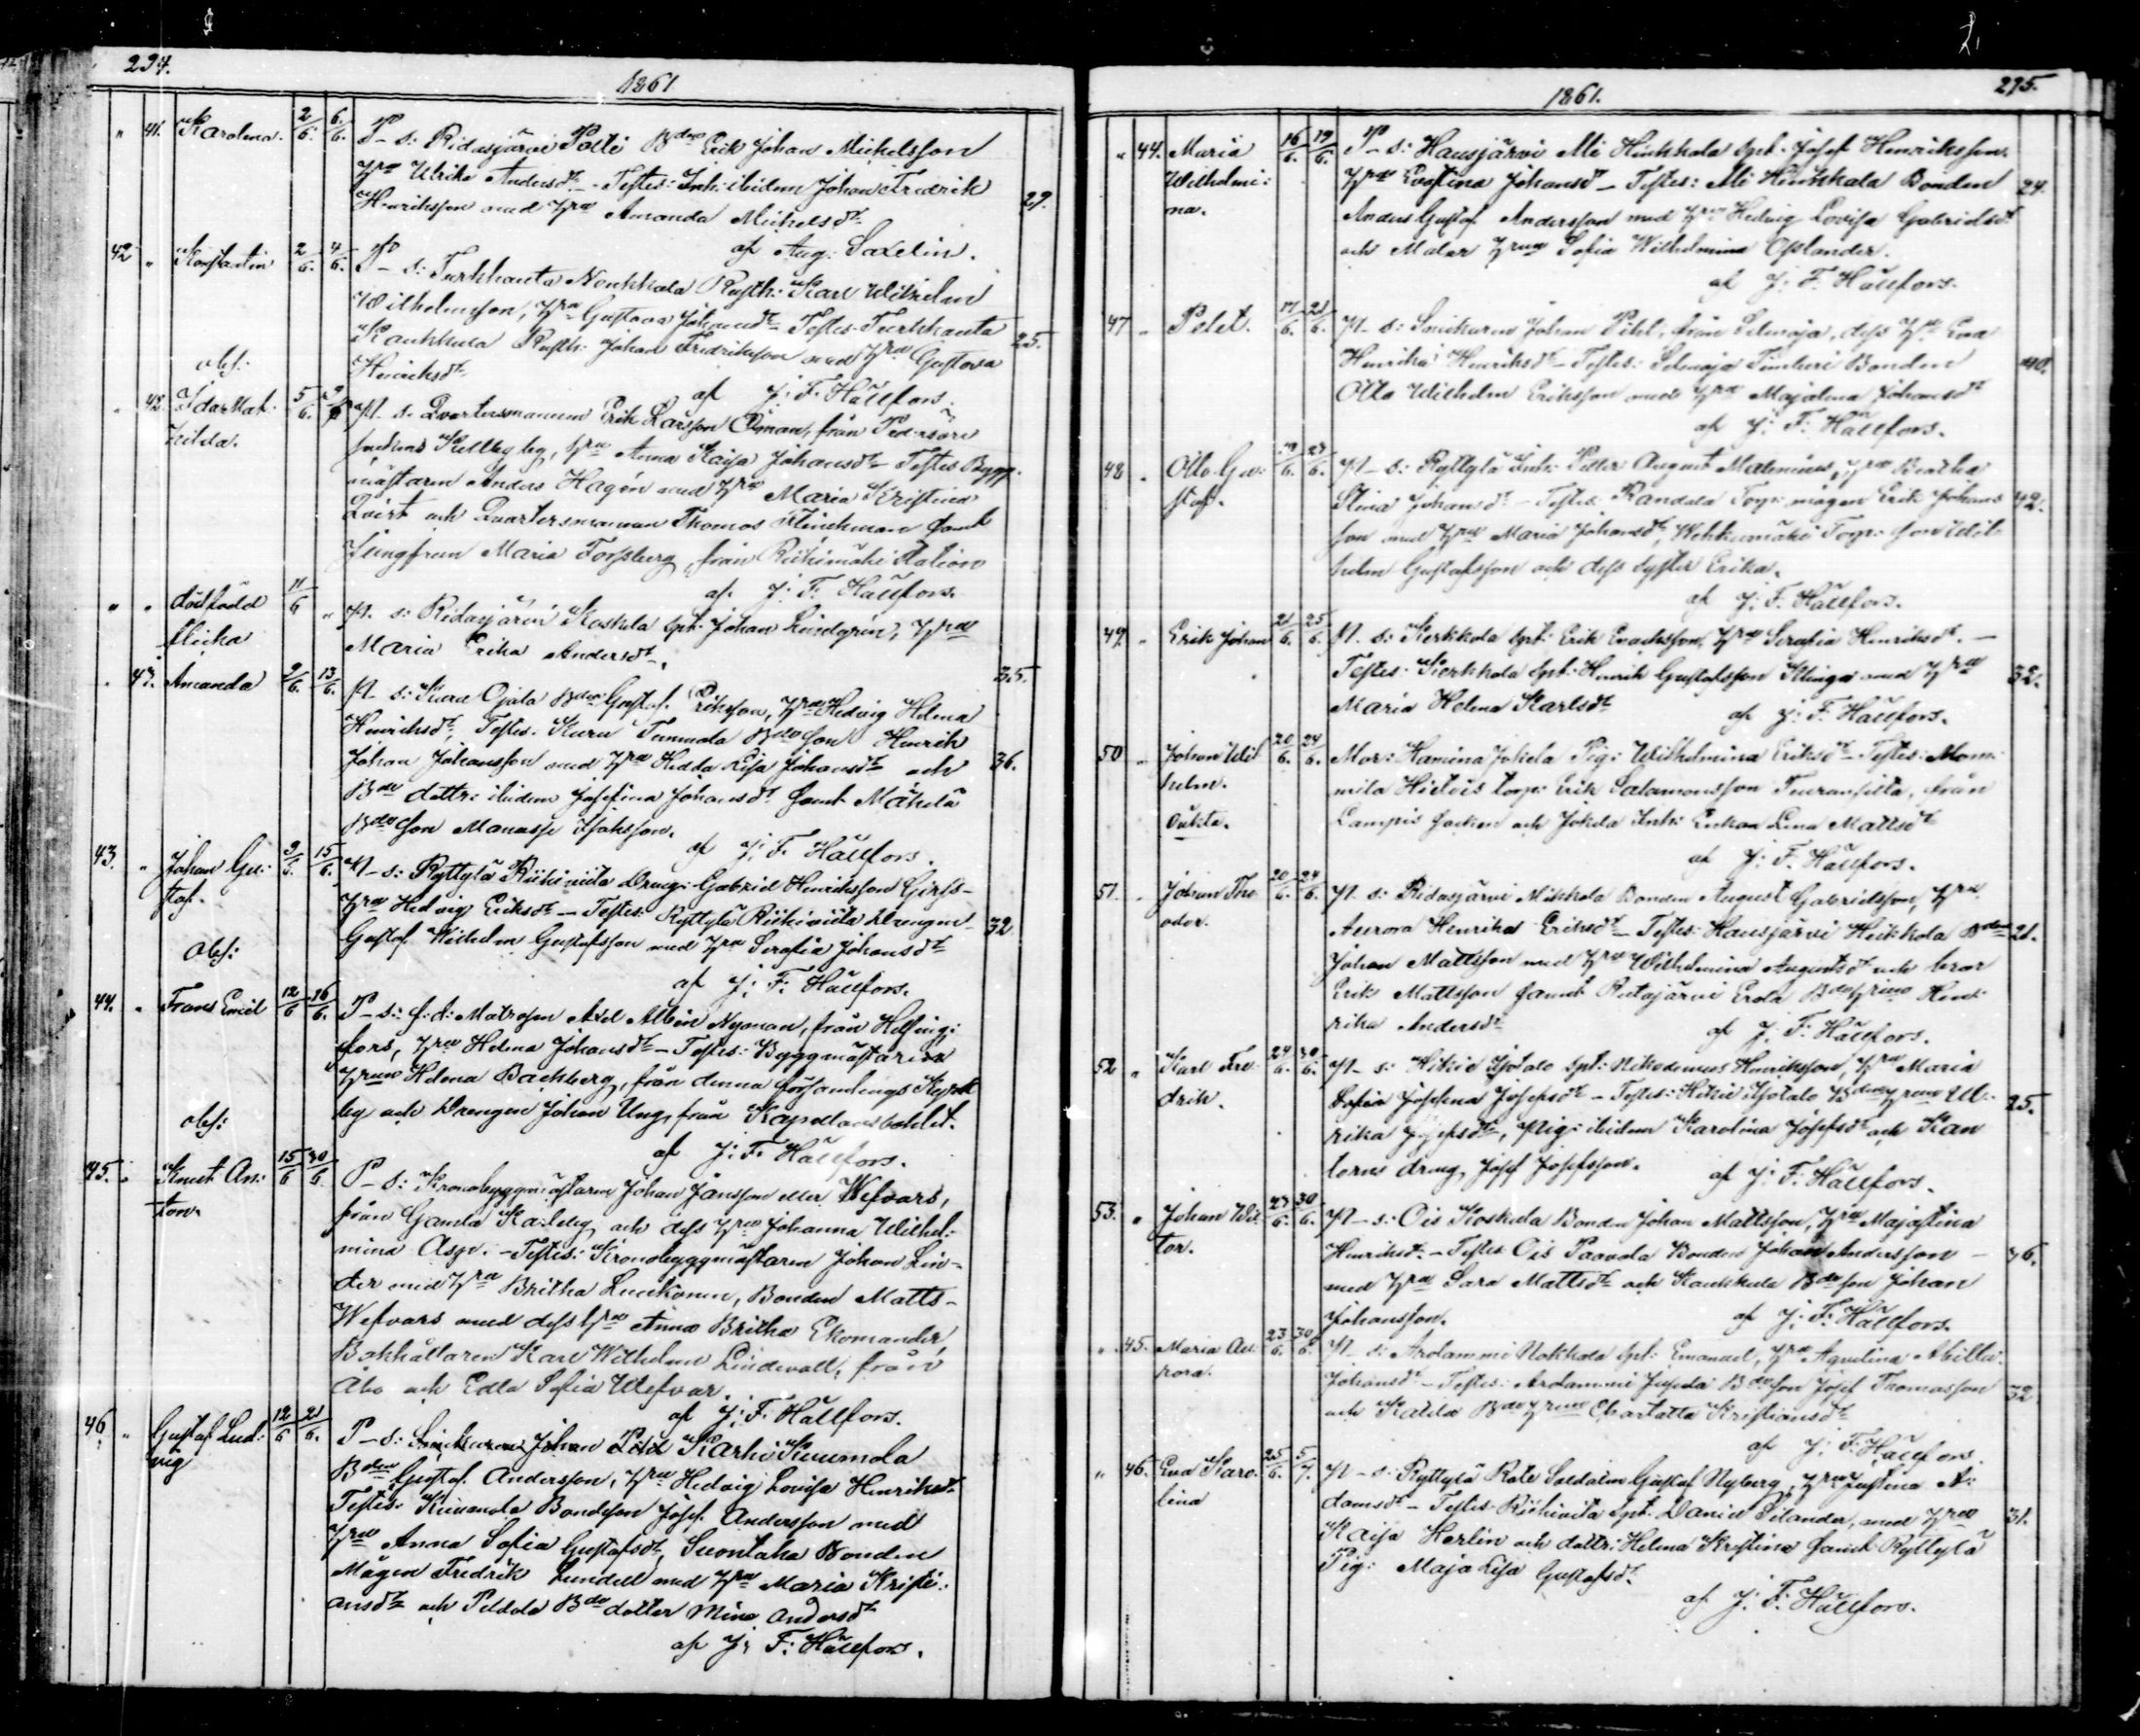 294.
1861
" 41. Karolina. 2/6. 6./6. P-s: Ridasjärvi Potti Bdn Erik Johan Michelsson
Hru Ulrika Andersdr - Testes: Inh: ibidem Johan Fredrik
Henriksson med Hru Amanda Michelsdr 29.
af Aug. Saxelin.
42 " Konstantin 2/6. 4/6. P-s: Turkhauta Nonkkala Rusth: Karl Wilhelm
Wilhelmsson, Hru Gustava Johansdr Testes: Turkhauta
Kaukkula Rusth: Johan Fredriksson med Hru Gustava 25.
Henriksdr
obs:
af J: F: Hällfors.
" 42. Ida Mat: 5/6. P-s: Qvartersmannen Erik Larsson Öman, från Pedersöre
hilda. Socken Kållby by, Hru Anna Kaisa Johansdr Testes Bygg-
mästaren Anders Hagén med Hru Maria Kristina
Qvist och Qvartersmannen Thomas Klinckman samt
Jungfrun Maria Forssberg, från Riihimäki Station
af J: F: Hällfors.
" " dödfödd 11/6 " P-s: Ridasjärvi Koskela Spt: Johan Lindgrén, Hru
flicka Maria Erika Andersdr. 35.
" 43. Amanda 9/6. 13/6. P-s: Kuru Ojala Bdn Gustaf Eriksson, Hru Hedvig Helena
Henriksdr. Testes: Kuru Tummola Bdeson Henrik
Johan Johansson med Hru Hedda Lisa Johansdr och 36.
Bde dottr: ibidem Josefina Johansdr samt Mäkelä
Bdeson Manasse Isaksson.
af J: F: Hällfors.
43. " Johan Gu: 9/6. 15/6. P-s: Ryttylä Riihiviita Dräng: Gabriel Henriksson Girss-
staf. Hru Hedvig Eriksdr - Testes: Ryttylä Riihiviita Drängen
Gustaf Wilhelm Gustafsson med Hru Serafia Johansdr 32
Obs:
af J: F: Hällfors.
44. " Frans Emil 12/6 16/6. P-s: f.d. Matrosen Axel Albin Nyman, från Helsing:
fors, Hru Helena Johansdr - Testes: Byggmästaren
Hrun Helena Backberg, från denna församlings Kyrko
by och Drängen Johan Ung, från Kapellansbohlet.
obs:
af J: F: Hällfors.
45. " Knut An: 15/6 30/6. P-s: Kronobyggmästaren Johan Jansson eller Wefvars,
ton. från Gamla Karleby och dess Hru Johanna Wilhel:
mina Asp. - Testes: Kronobyggmästaren Johan Lin-
der med Hru Britha Luukonen, Bonden Matts-
Wefvars med dess Hru Anna Britha Ekomander,
Bokhållaren Karl Wilhelm Lindevall, från
Åbo och Edla Sofia Wefvar.
af J: F: Hällfors.
46. " Gustaf Lud: 12/6 21/6. P-s: Karhi Kuumola
vig Bdn Gustaf Andersson, Hru Hedvig Lovisa Henriksdr.
Testes: Kuumola Bondeson Josef Andersson med
Hru Anna Sofia Gustafsdr, Suontaka Bonden
Mågen Fredrik Lundell med Hru Maria Kristi:
ansdr och Peldola Bde dotter Mina Andersdr
af J: F: Hällfors.
295.
1861.
" 44. Maria 16/6. 19/6. P-s: Hausjärvi Ali Hinkkala Spt: Josef Henriksson.
Wilhelmi: Hru Eva Stina Johansdr - Testes: Ali Hinkkala Bonden 24.
na. Anders Gustaf Andersson med Hru Hedvig Lovisa Gabrielsdr
och Målar Hrun Sofia Wilhelmina Oplander.
af J: F: Hällfors.
47 " Pelet. 17/6. 21/6. P-s: Smickaren Johan Pihl, från Selmoja, dess Hru Eva
Henrika Henriksdr - Testes: Selmoja Timberi Bonden 40.
Otto Wilhelm Eriksson med Hru Majalena Johansdr
af J: F: Hällfors.
48 " Otto Gu: 19/6. 27/6. P-s: Ryttylä Inh: Petter August Malenius, Hru Beatha
staf. Stina Johansdr - Testes: Randala Torp: mågen Erik Johans 42.
son med Hru Maria Johansdr, Wehkamäki Torp: son Wil-
helm Gustafsson och dess syster Erika.
af J: F: Hällfors.
49. " Erik Johan 21/6. 25/6. P-s: Kerkkola Spt: Erik Enocksson, Hru Serafia Henriksdr. -
Testes: Kerkkola Spt: Henrik Gustafsson Klinga med Hru 32.
Maria Helena Karlsdr
af J: F: Hällfors.
50 " Johan Wil 20/6. 24/6. Mor: Hamina Jokela Pig: Wilhelmina Eriksdr - Testes: Mom:
helm. mila Hietois torp: Erik Salamonsson Tuuransilta, från
Oäkta. Lampis socken och Jokela Inh: Enkan Lena Mattsdr
af J: F: Hällfors.
51. " Johan The 20/6. 24/6. P-s: Ridasjärvi Mikkola Bonden August Gabrielsson, Hru
odor. Aurora Henrika Eriksdr - Testes: Hausjärvi Heikkola Bdn 21.
Johan Mattsson med Hru Wilhelmina Augustsdr och bror
Erik Mattsson samt Rutajärvi Erola Bde Hrun Hen:
rika Andersdr
af J: F: Hällfors.
52 " Karl Fre: 24/6. 30/6. P-s: Hikiä Isotalo Spt: Nikodemus Henriksson, Hru Maria
drik. Sofia Josefina Josefsdr - Testes: Hikiä Isotalo Bde Hrun Ul: 25.
rika Josefsdr, Pig: ibidem Karolina Josefsdr och Kan
torns dräng Josef Josefsson.
af J: F: Hällfors.
53. " Johan Wik 27/6. 30/6. P-s: Ois Koskela Bonden Johan Mattsson, Hru Majastina
tor. Henriksdr. - Testes: Ois Paavola Bonden Johan Andersson - 36.
med Hru Sara Mattsdr och Kaukkula Bdeson Johan
Johansson.
af J: F: Hällfors.
" 45. Maria Au: 23/6. 30/6. P-s: Arolammi Nokkala Spt: Emanuel, Hru Aqvelina
rora. Johansdr - Testes: Arolammi Jussila Bdeson Josef Thomasson 32
och Katila Bde Hrun Charlotta Kristiansdr
af J: F: Hällfors.
" 46. Eva Karo: 25/6. 5/7. P-s: Ryttylä Rote Soldaten Gustaf Nyberg, Hru Justina A:
lina damsdr - Testes: Riihiviita Spt: Daniel Silander, med Hru 31.
Kaisa Herlin och dottr: Helena Kristina samt Ryttylä
Pig: Maja Lisa Gustafsdr.
af J: F: Hällfors.